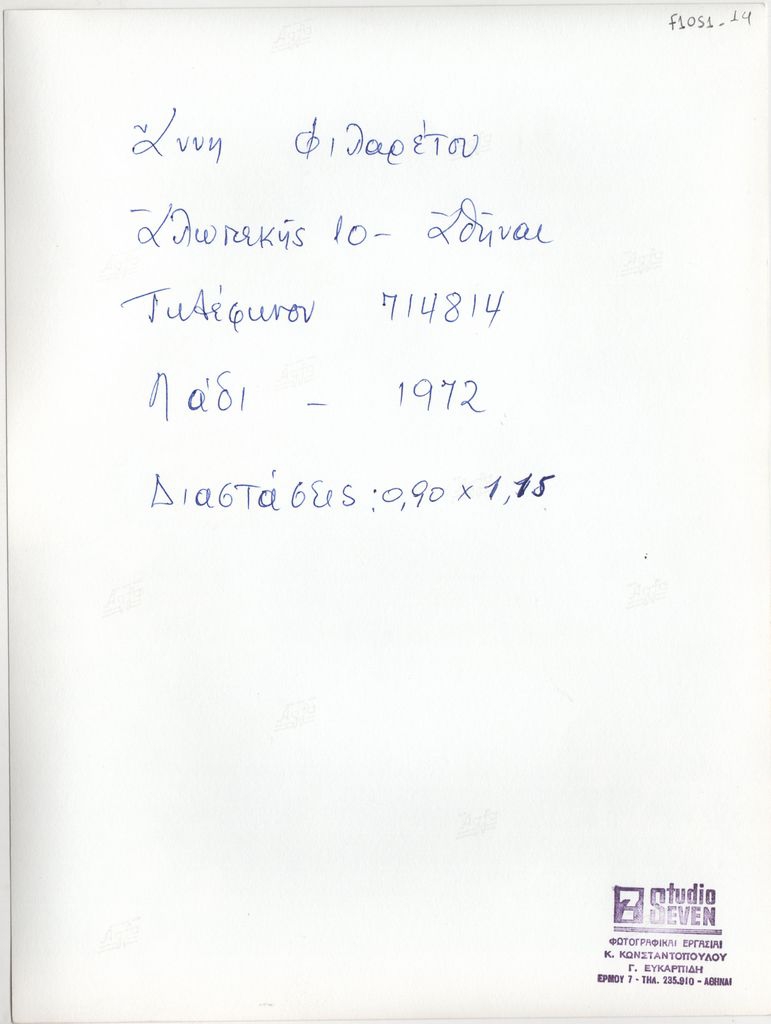 f1051-14
Ἄννη Φιλαρέτου
Ἀλωπεκῆς 10 - Ἀθῆναι
Τηλέφωνον 714814
Λάδι - 1972
Διαστάσεις: 0,90 x 1,15
Studio
SEVEN
ΦΩΤΟΓΡΑΦΙΚΑΙ ΕΡΓΑΣΙΑΙ
Κ. ΚΩΝΣΤΑΝΤΟΠΟΥΛΟΥ
Γ. ΕΥΚΑΡΠΙΔΗ
ΕΡΜΟΥ 7 - ΤΗΛ. 235.910 - ΑΘΗΝΑΙ